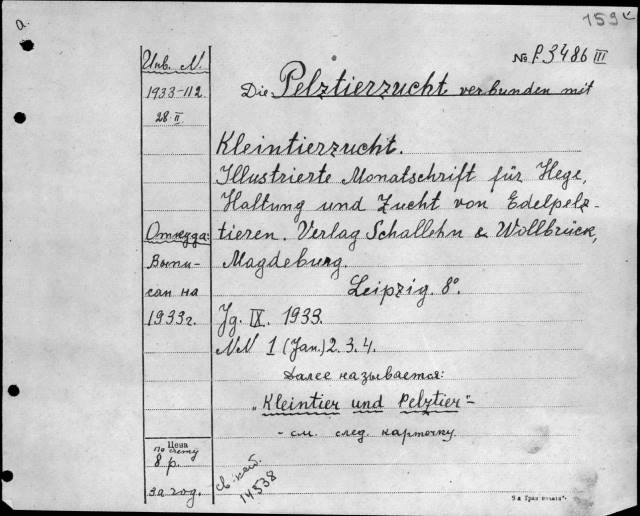 а.
159
№ P.3486 III
Инв. N.
1933-112.
28 II
Откуда:
Выпи-
сан на
1933 г.
Цена
по счету
8 р.
за год.
Die Pelztierzucht verbunden mit
Kleintierzucht.
Illustrierte Monatschrift für Hege,
Haltung und Zucht von Edelpelz-
tieren. Verlag Schallehn & Wollbrück,
Magdeburg.
Leipzig. 8°.
Jg. IX. 1933.
NN 1 (Jan.) 2. 3. 4.
Далее называется:
„Kleintier und Pelztier"-
- см. след. карточку.
14538